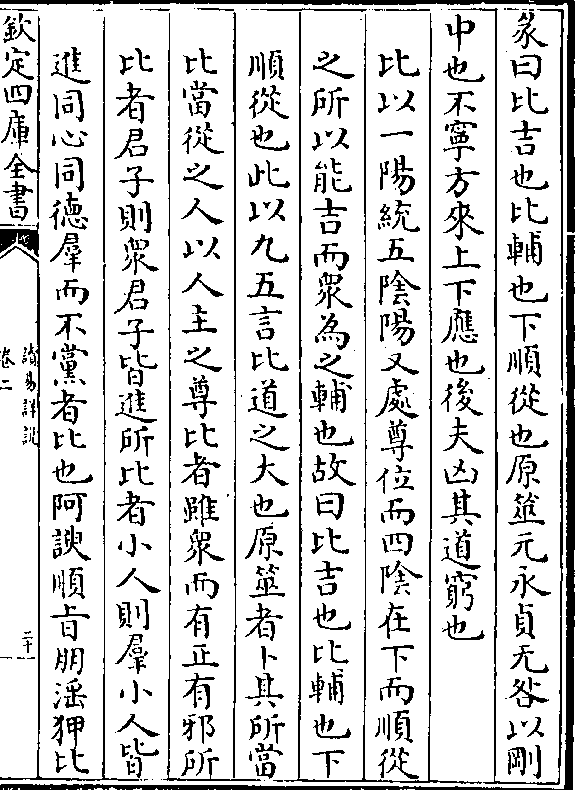 彖曰比吉也比輔也下順從也原筮元永貞无咎以剛
中也不寧方來上下應也後夫凶其道窮也
比以一陽統五陰陽又處尊位而四陰在下而順從
之所以能吉而衆為之輔也故曰比吉也比輔也下
順從也此以九五言比道之大也原筮者卜其所當
比當從之人以人主之尊比者雖衆而有正有邪所
比者君子則衆君子皆進所比者小人則羣小人皆
進同心同德羣而不黨者比也阿諛順㫖朋淫狎比
欽定四庫全書
讀易詳說
卷二
二十